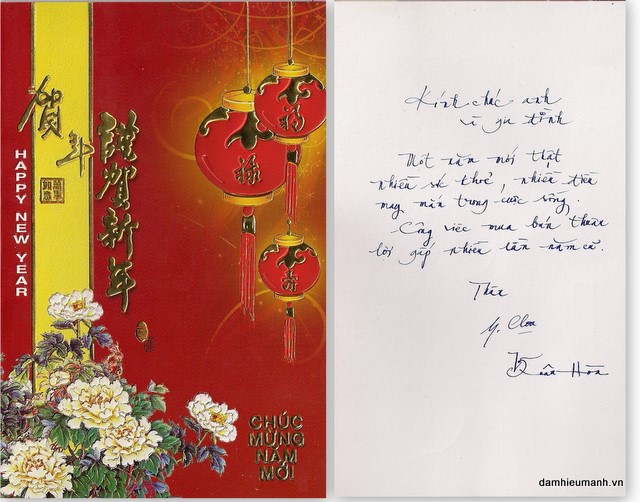 賀年
謹賀新年
萬事如意
HAPPY NEW YEAR
福
祿
壽
CHÚC
MỪNG
NĂM
MỚI
Kính chúc anh
và gia đình
Một năm mới thật
nhiều sức khoẻ, nhiều tiền
may mắn trong cuộc sống.
Công việc mua bán thuận
lợi gấp nhiều lần năm cũ.
Thân
Xuân Hòa
damhieumanh.vn